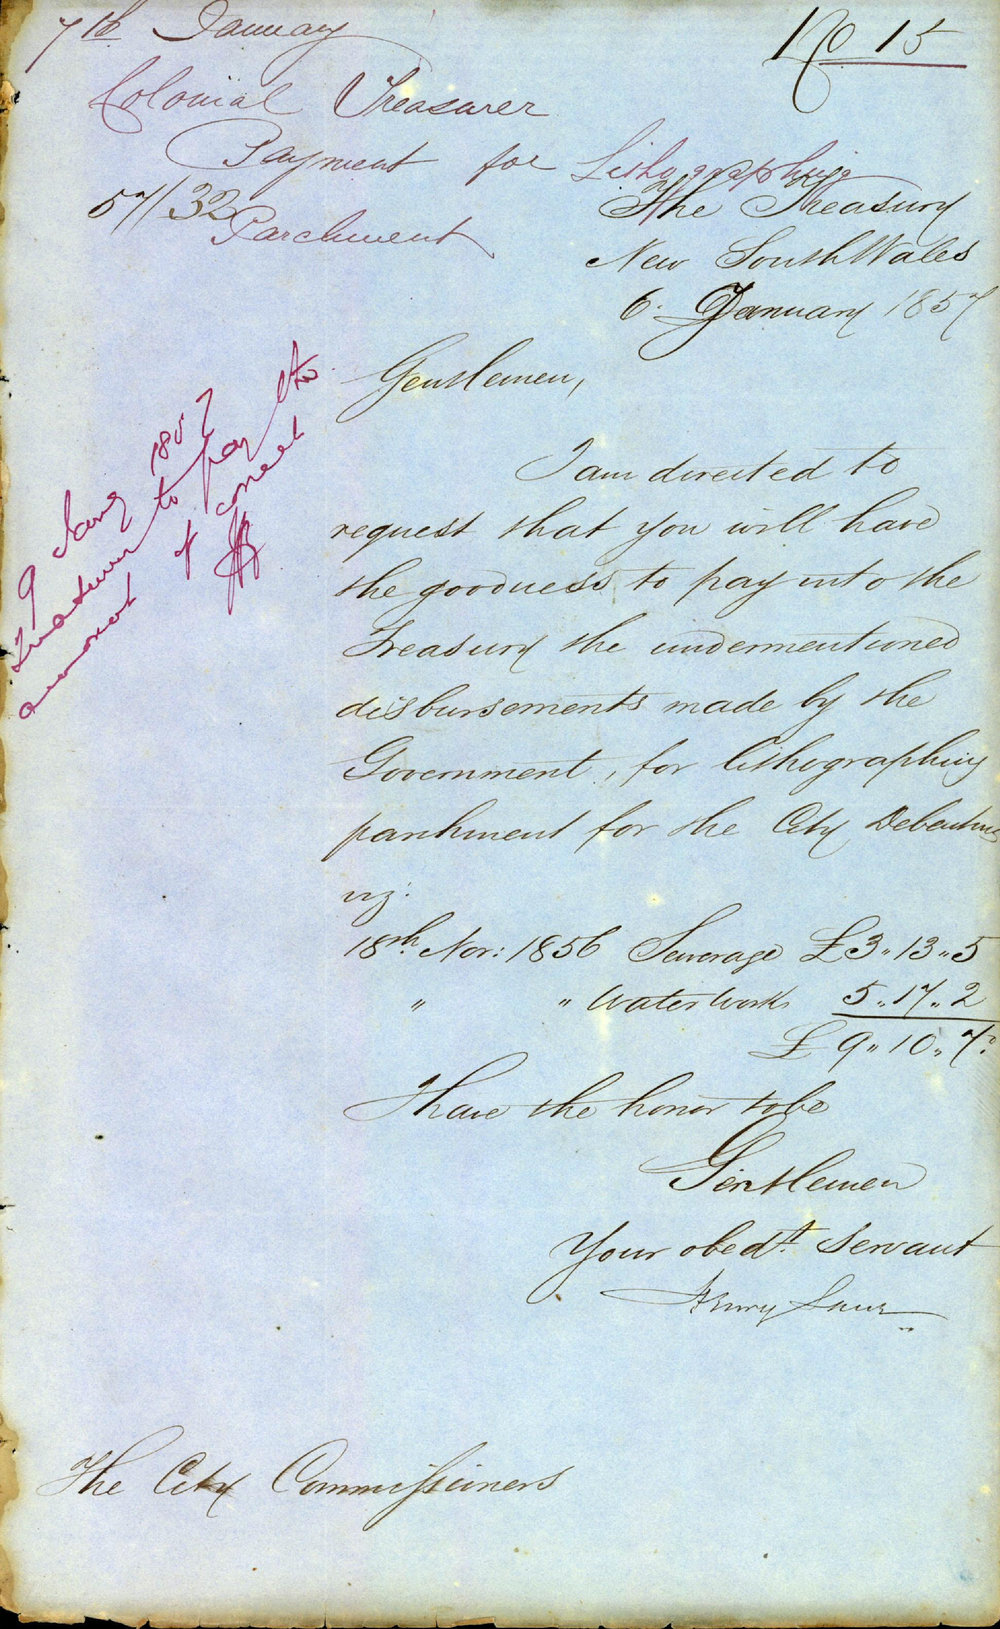 7th January
No 15
Colonial Treasurer
Payment for Lithographing
57/32
Parchment
The Treasury
New South Wales
6. January 1857
Gentlemen,
I am directed to
request that you will have
the goodness to pay into the
Treasury the undermentioned
disbursements made by the
Government, for lithographing
parchment for the City Debentures
viz.
18th Nov: 1856 Sewerage £3 " 13 " 5
" " Water Works 5 " 17 " 2
£ 9 " 10 " 7.
I have the honor to be
Gentlemen
Your obedt. Servant
Henry Lane
The City Commissioners
9 Jany 1857
Treasurer to pay the
amount if correct